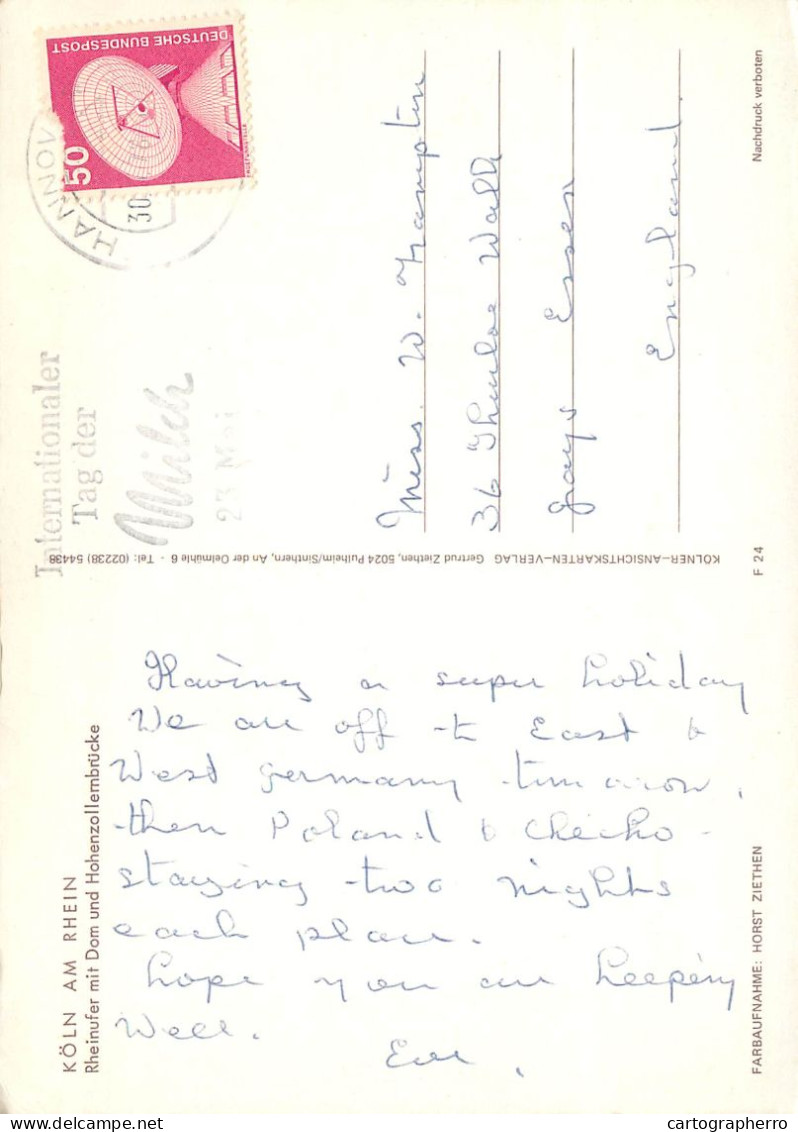 DEUTSCHE BUNDESPOST
50
HANNOV
30.
Internationaler
Tag der
Milch
23 Mai
Miss. W. Hampton
36 Thurloe Walk
Grays Essex
England.
Nachdruck verboten
KÖLNER-ANSICHTSKARTEN-VERLAG Gertrud Ziethen, 5024 Pulheim/Sinthern, An der Oelmühle 6 - Tel: (02238) 54438
F 24
KÖLN AM RHEIN
Rheinufer mit Dom und Hohenzollernbrücke
Having a super holiday
We are off to East &
West Germany tomorrow,
then Poland & Checho -
staying two nights
each place.
hope you are keeping
Well.
Eve.
FARBAUFNAHME: HORST ZIETHEN
delcampe.net
cartographerro